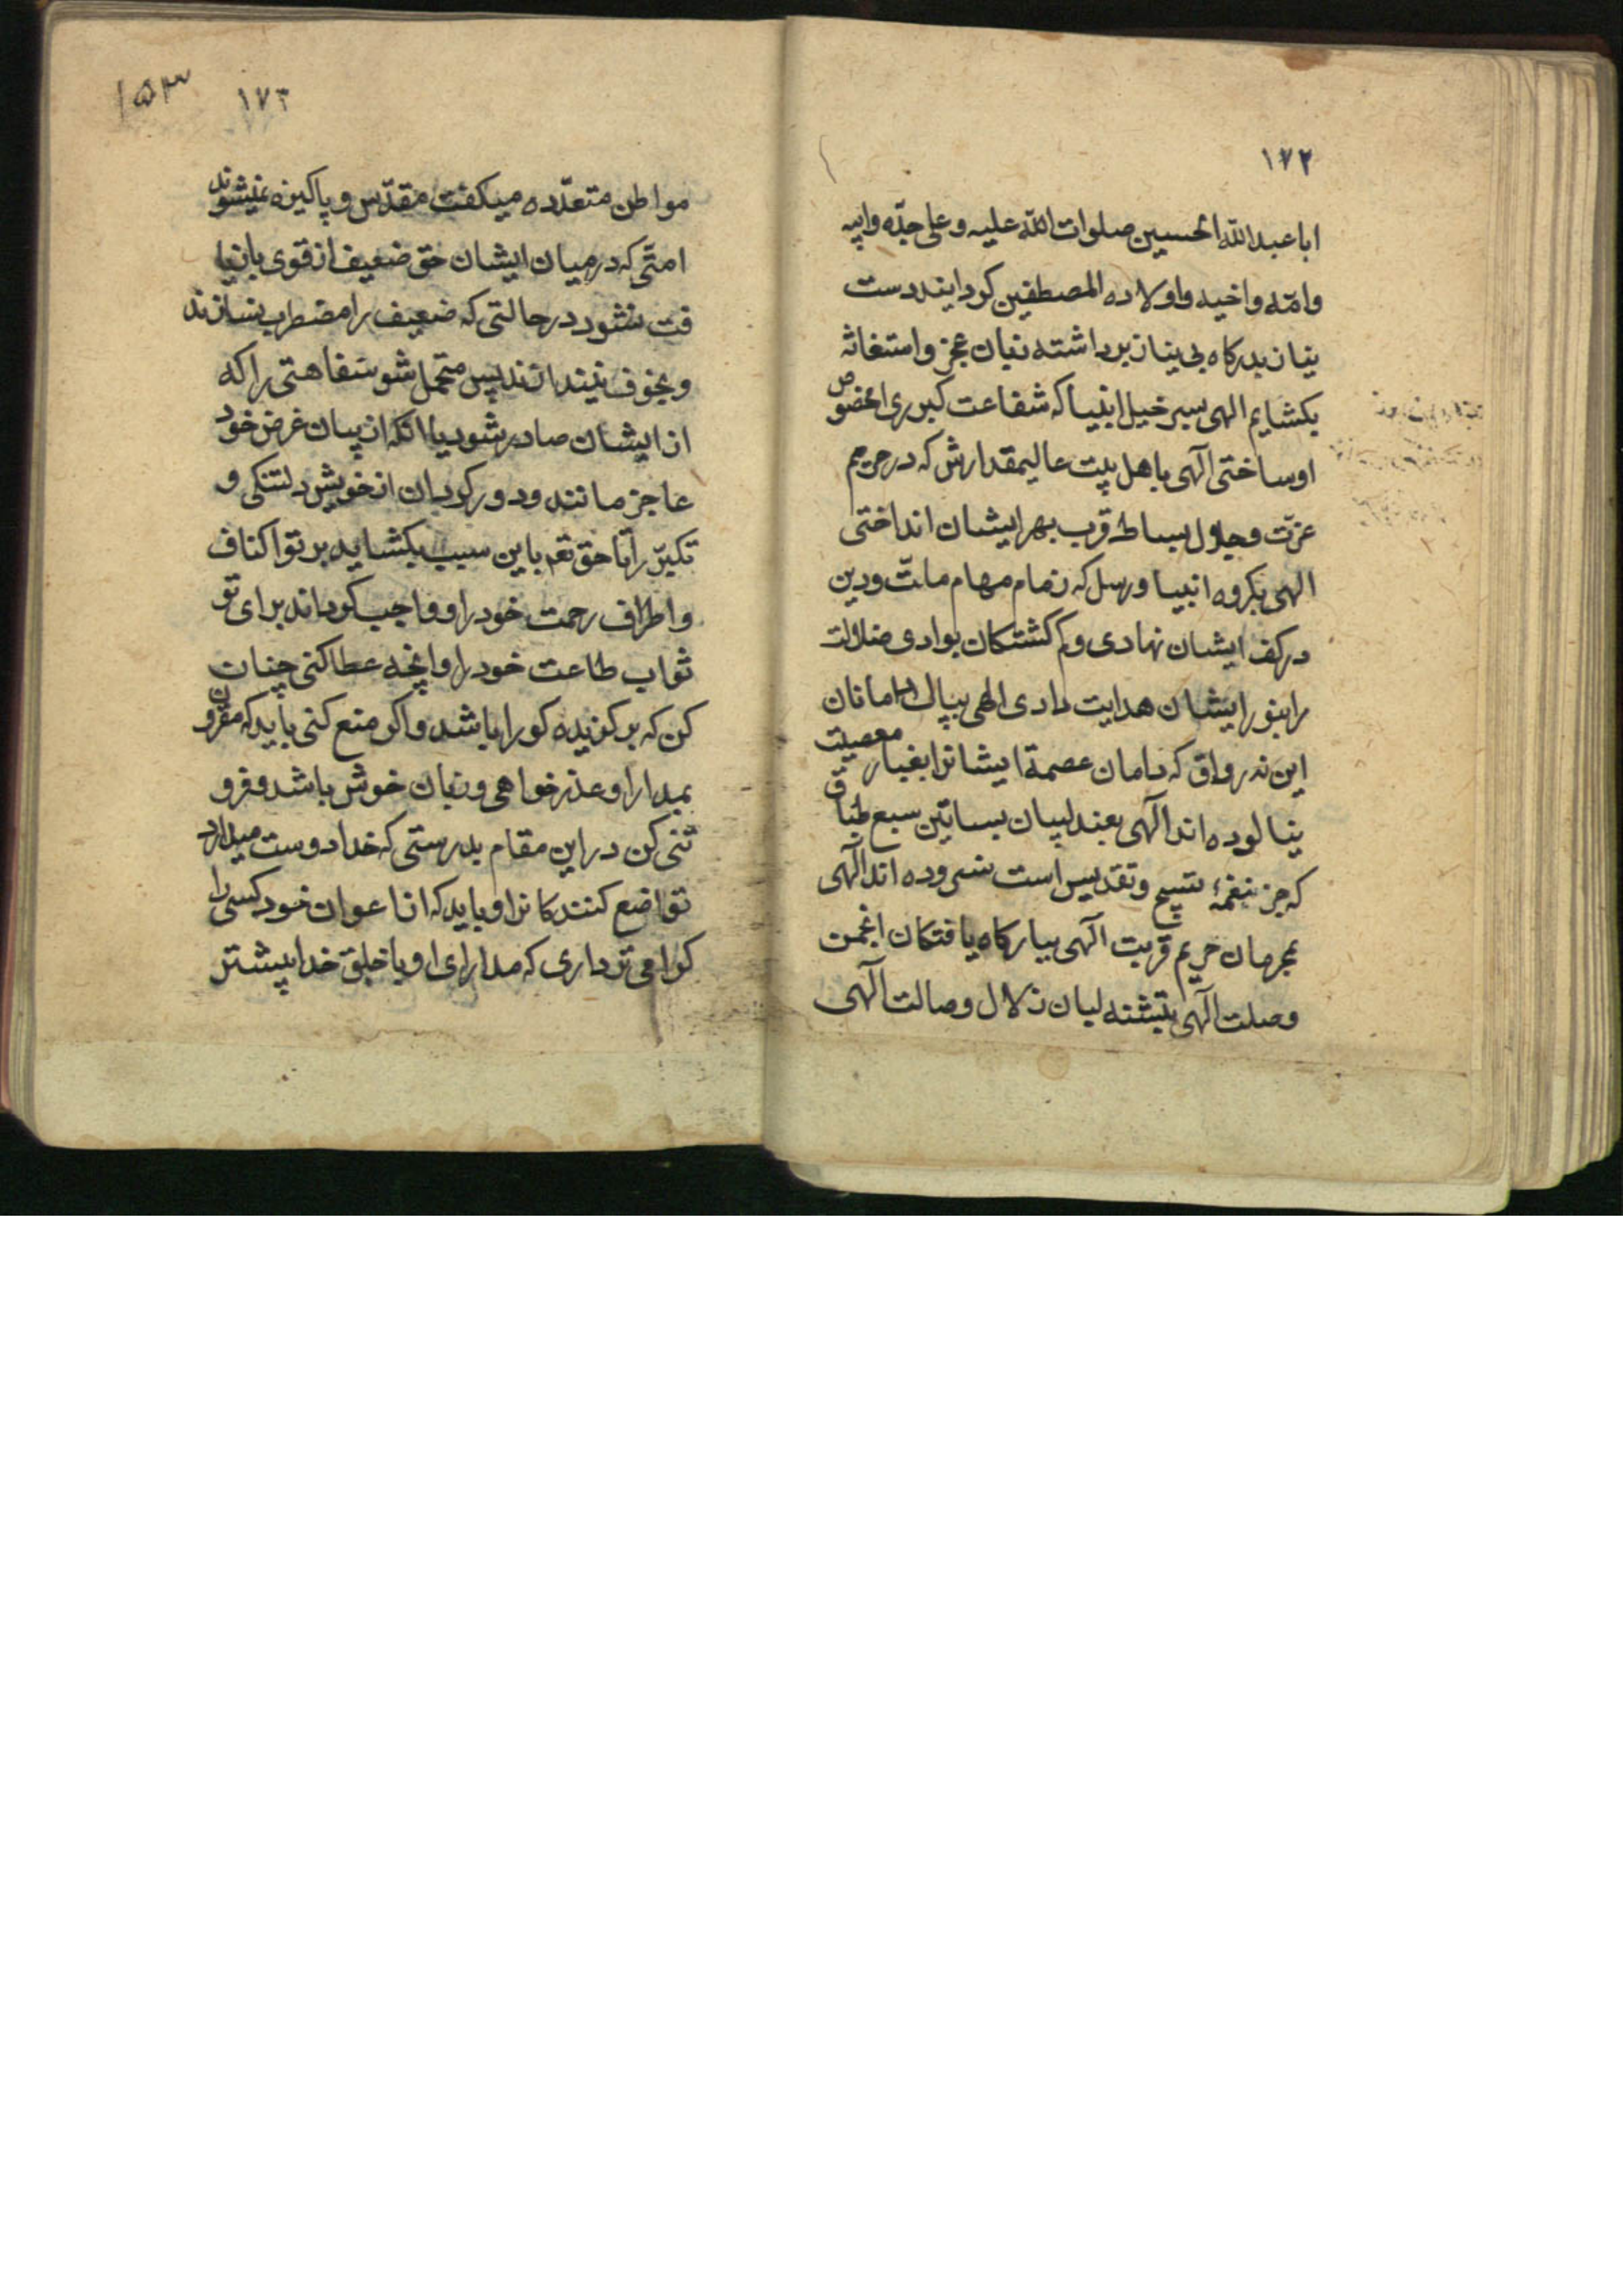 ۱۷۲
ابا عبدالله الحسین صلوات الله علیه و علی جدّه و ابیه
و امّه و اخیه و اولاده المصطفین کردانید دست
نیاز بدرکاه بی نیاز برداشته زبان عجز و استغاثه
بکشایم الهی بسر خیل انبیا که شفاعت کبری را مخصوص
او ساختی الهی باهل بیت عالیمقدارش که در حریم
عزّت و جلال بساط قرب بهر ایشان انداختی
الهی بکروه انبیا و رسل که زمام مهام ملّت و دین
در کف ایشان نهادی و کم کشتکان بوادی ضلالت
را بنور ایشان هدایت دادی الهی بپاک دامانان
این نه رواق که دامان عصمة ایشانرا بغبار معصیت
نیالوده اند الهی بعندلیبان بساتین سبع طباق
که جز نغمهٔ تسبیح و تقدیس است نسروده اند الهی
بمحرمان حریم قربت الهی ببارکاه یافتکان انجمن
وصلت الهی بتشنه لبان زلال وصالت الهی
۱۷۳ ۱۵۳
مواطن متعدّده میکفت مقدّس و پاکیزه نمیشوند
امتی که در میان ایشان حق ضعیف از قوی بازیا
فت نشود در حالتی که ضعیف را مضطرب نسازند
و بخوف نیندازند پس متحمل شو سفاهتی را که
از ایشان صادر شود یا انکه از بیان غرض خود
عاجز مانند و دور کردان از خویش دلتنکی و
تکبّر را تا حق تعم باین سبب بکشاید بر تو اکناف
و اطراف رحمت خود را و واجب کرداند برای تو
ثواب طاعت خود را و انچه عطا کنی چنان
کن که بر کزیده کورا باشد و اکر منع کنی باید که مقرون
بمدارا و عذر خواهی و زبان خوش باشد و فرو
تنی کن در این مقام بدرستی که خدا دوست میدارد
تواضع کنندکانرا و باید که از اعوان خود کسی را
کرامی تر داری که مدارای او با خلق خدا بیشتر